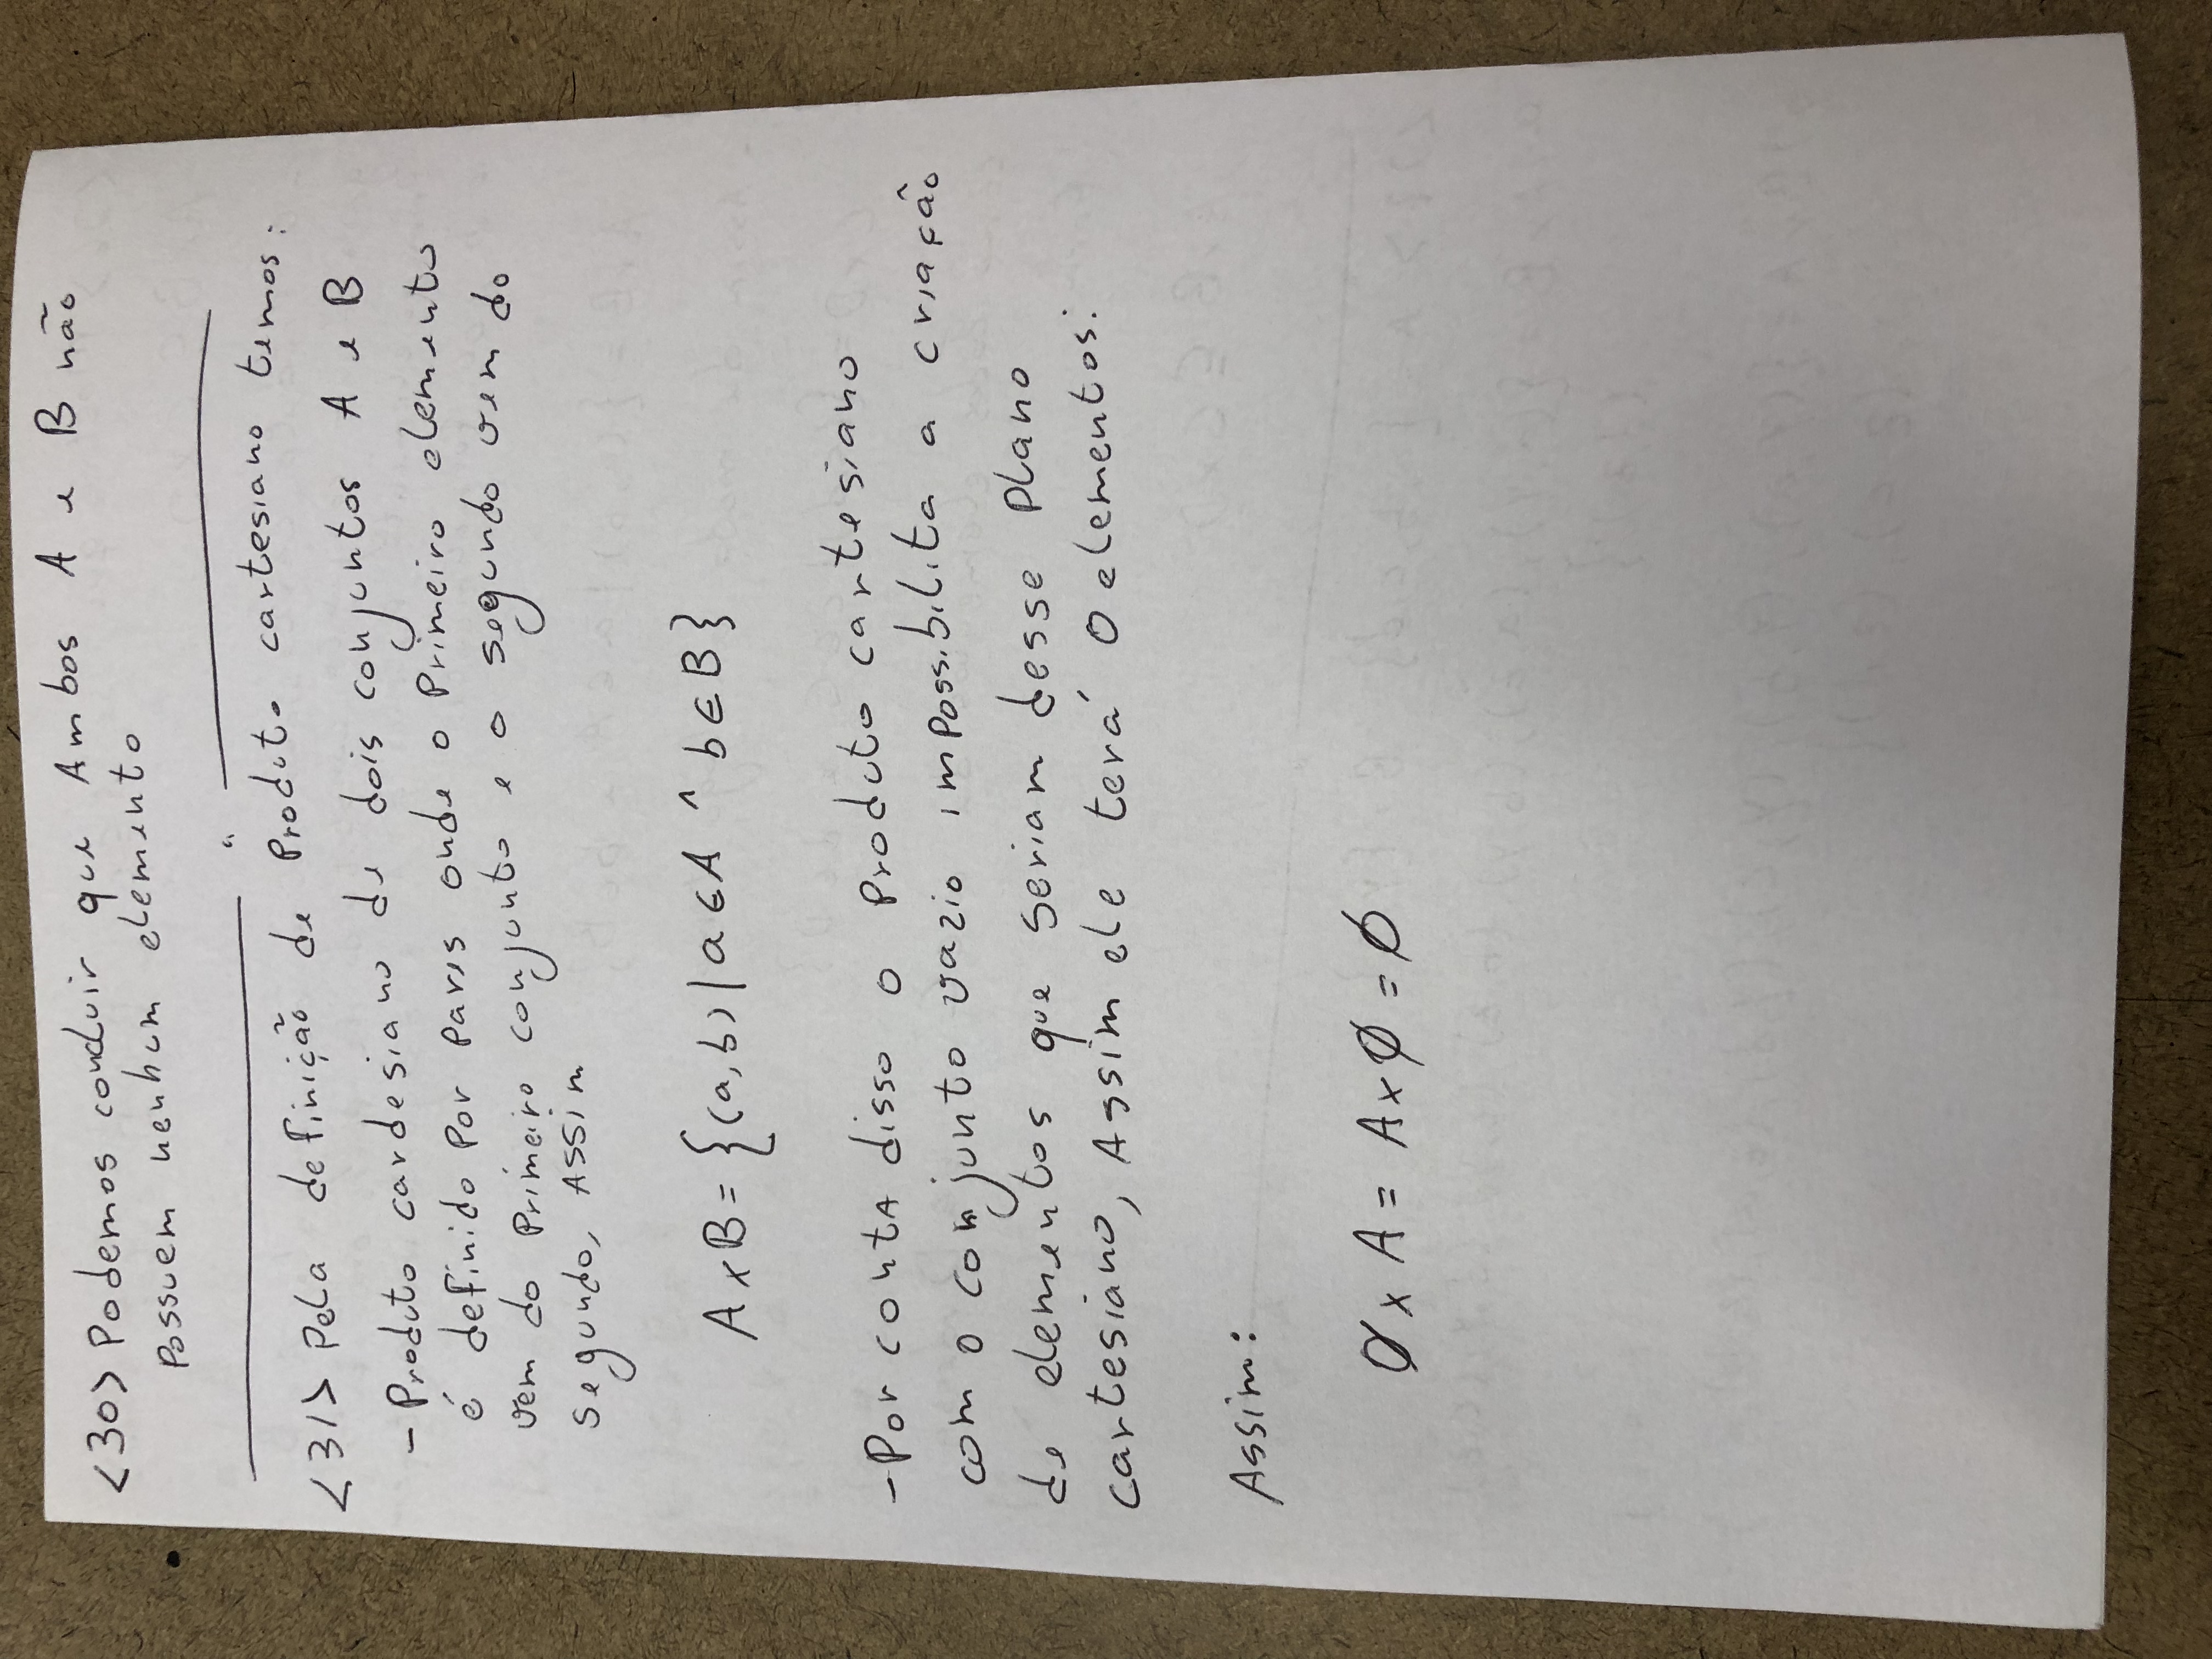 <30> Podemos concluir que Ambos A e B não
possuem nenhum elemento
"
<31> Pela definição de Produto cartesiano temos:
- Produto cardesiano de dois conjuntos A e B
é definido por pares onde o Primeiro elemento
vem do Primeiro conjunto e o segundo vem do
segundo, Assim
A x B = {(a,b) | a ∈ A ^ b ∈ B}
- Por conta disso o Produto cartesiano
com o conjunto vazio impossibilita a criação
de elementos que seriam desse plano
cartesiano, Assim ele terá 0 elementos:
Assim:
∅ x A = A x ∅ = ∅